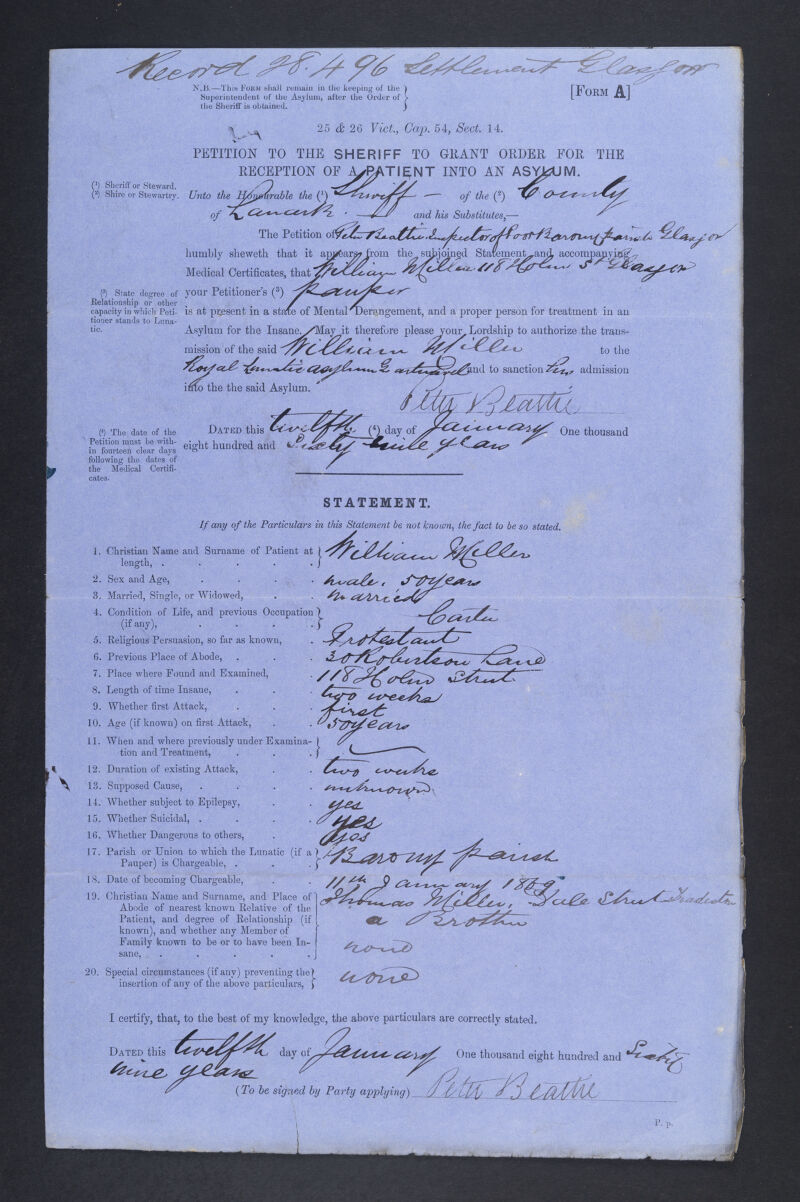 Record 28.496 Settlement Glasgow
N.B.—This Form shall remain in the keeping of the
Superintendent of the Asylum, after the Order of
the Sheriff is obtained.
[Form A]
25 & 26 Vict., Cap. 54, Sect. 14.
PETITION TO THE SHERIFF TO GRANT ORDER FOR THE
RECEPTION OF A PATIENT INTO AN ASYLUM.
(1) Sheriff or Steward.
(2) Shire or Stewartry.
Unto the Honourable the (1) Sheriff — of the (2) County
of Lanark. — and his Substitutes,—
The Petition of Peter Beattie Inspector of Poor Barony parish Glasgow
humbly sheweth that it appears from the subjoined Statement and accompanying
Medical Certificates, that William Miller 118 Holm St Glasgow
(3) State degree of
Relationship or other
capacity in which Peti-
tioner stands to Luna-
tic.
your Petitioner's (3) pauper
is at present in a state of Mental Derangement, and a proper person for treatment in an
Asylum for the Insane. May it therefore please your Lordship to authorize the trans-
mission of the said William Miller to the
Royal Lunatic asylum Gartnavel and to sanction his admission
into the the said Asylum.
Peter Beattie
(4) The date of the
Petition must be with-
in fourteen clear days
following the dates of
the Medical Certifi-
cates.
Dated this twelfth (4) day of January One thousand
eight hundred and Sixty nine years
STATEMENT.
If any of the Particulars in this Statement be not known, the fact to be so stated.
1. Christian Name and Surname of Patient at length, . . . . . William Miller
2. Sex and Age, . . . . male. 50 years
3. Married, Single, or Widowed, . . married
4. Condition of Life, and previous Occupation (if any), . . . . . Carter
5. Religious Persuasion, so far as known, . Protestant
6. Previous Place of Abode, . . . 30 Robertson Lane
7. Place where Found and Examined, . 118 Holm Street
8. Length of time Insane, . . . two weeks
9. Whether first Attack, . . . first
10. Age (if known) on first Attack, . . 50 years
11. When and where previously under Examina-
tion and Treatment, . . .
12. Duration of existing Attack, . . two weeks
13. Supposed Cause, . . . . unknown
14. Whether subject to Epilepsy, . . yes
15. Whether Suicidal, . . . . yes
16. Whether Dangerous to others, . . yes
17. Parish or Union to which the Lunatic (if a
Pauper) is Chargeable, . . . Barony parish
18. Date of becoming Chargeable, . . 11th January 1869
19. Christian Name and Surname, and Place of
Abode of nearest known Relative of the
Patient, and degree of Relationship (if
known), and whether any Member of
Family known to be or to have been In-
sane, . . . . . .
Thomas Miller, Dale Street Tradeston
a Brother
none
20. Special circumstances (if any) preventing the
insertion of any of the above particulars, none
I certify, that, to the best of my knowledge, the above particulars are correctly stated.
Dated this twelfth day of January One thousand eight hundred and Sixty
nine years
(To be signed by Party applying) Peter Beattie
P. p.